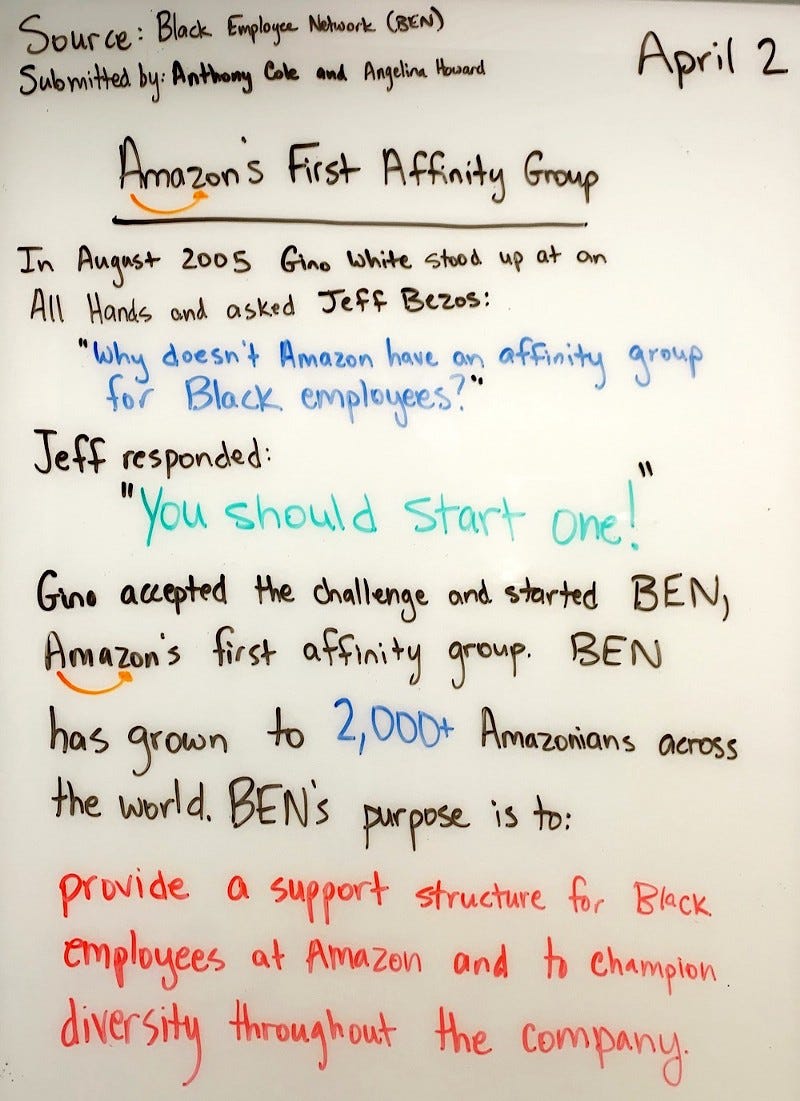 Source: Black Employee Network (BEN)
April 2
Submitted by: Anthony Cole and Angelina Howard
Amazon's First Affinity Group
In August 2005 Gino White stood up at an
All Hands and asked Jeff Bezos:
"Why doesn't Amazon have an affinity group
for Black employees?"
Jeff responded:
"You should start one!"
Gino accepted the challenge and started BEN,
Amazon's first affinity group. BEN
has grown to 2,000+ Amazonians across
the world. BEN's purpose is to:
provide a support structure for Black
employees at Amazon and to champion
diversity throughout the company.